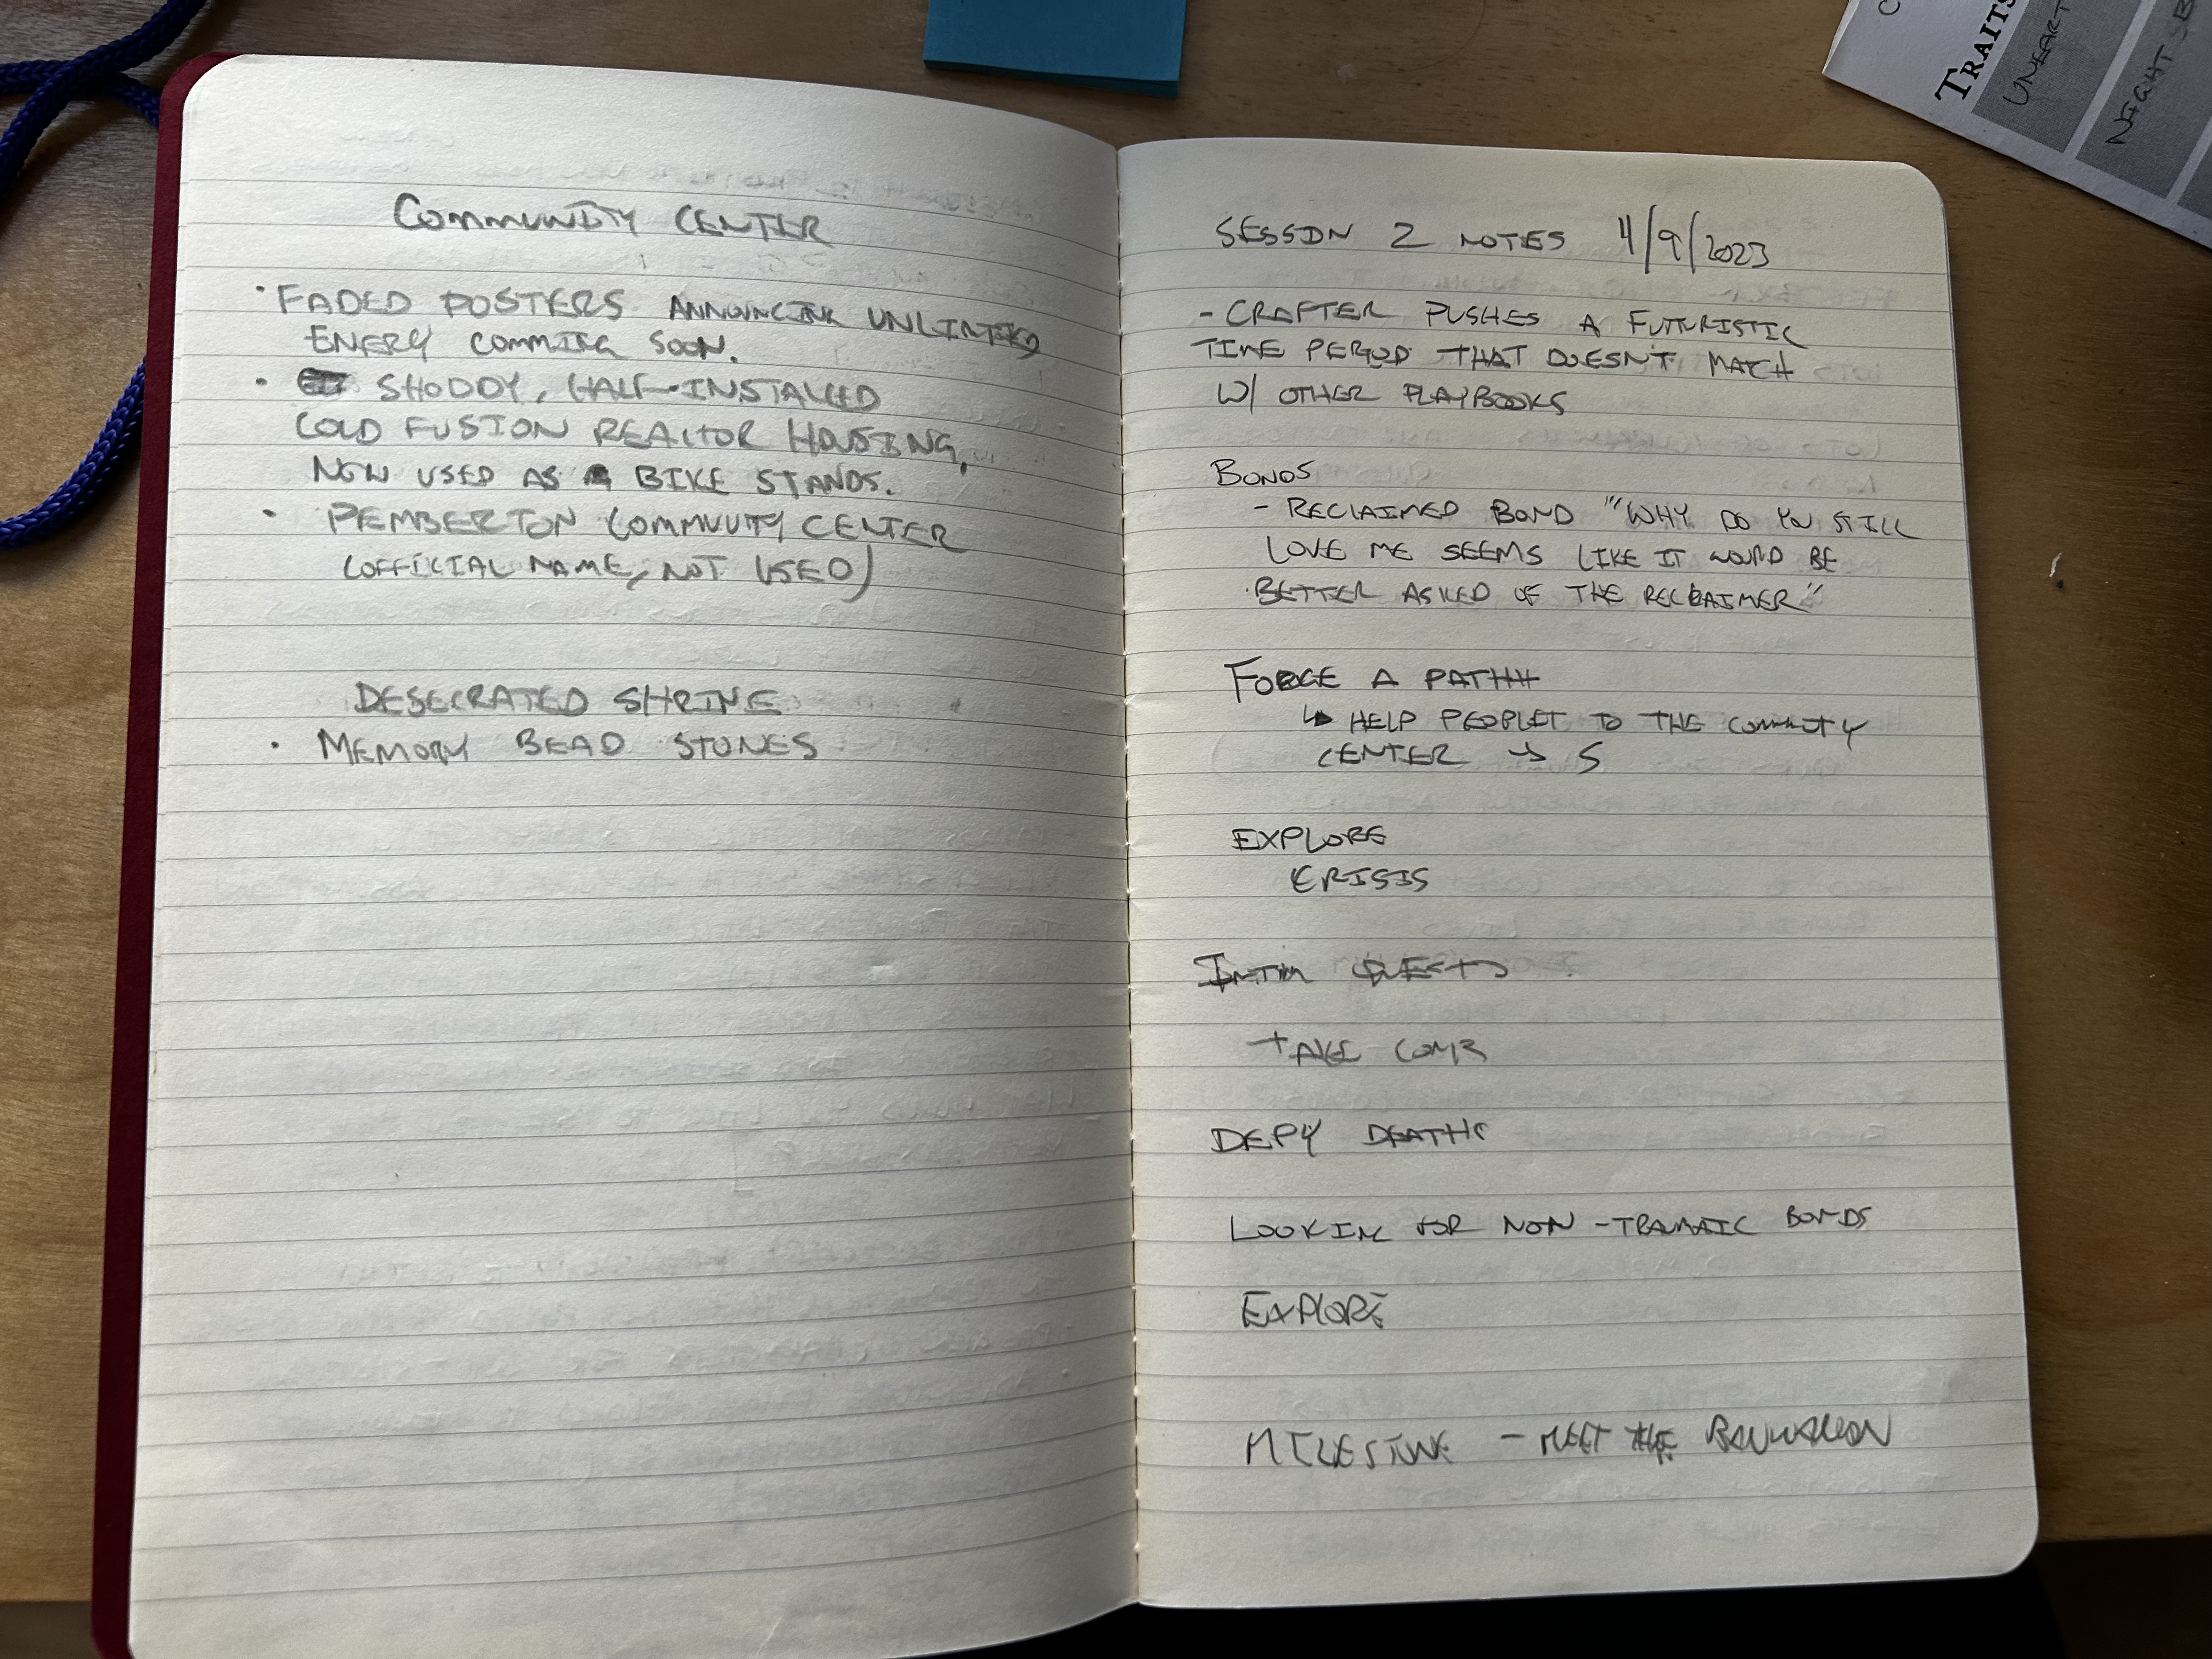 COMMUNITY CENTER
• FADED POSTERS ANNOUNCING UNLIMITED
ENERY COMMING SOON.
• SHODDY, HALF-INSTALLED
COLD FUSION REACTOR HOUSING,
NOW USED AS BIKE STANDS.
• PEMBERTON COMMUUITY CENTER
(OFFICIAL NAME, NOT USED)
DESECRATED SHRINE
• MEMORY BEAD STONES
SESSION 2 NOTES 4/9/2023
- CRAFTER PUSHES A FUTURISTIC
TIME PERIOD THAT DOESN'T MATCH
W/ OTHER PLAYBOOKS
BONDS
- RECLAIMED BOND "WHY DO YOU STILL
LOVE ME SEEMS LIKE IT WOULD BE
BETTER ASKED OF THE RECLAIMER"
FORGE A PATH
↳ HELP PEOPLET TO THE COMMUNITY
CENTER → 5
EXPLORE
CRISIS
QUEST
TAKE
DEFY DEATH
LOOKING FOR NON-TRAMATIC BONDS
EXPLORE
MILESTONE - MEET THE
TRAITS
UNEART
NIGHT